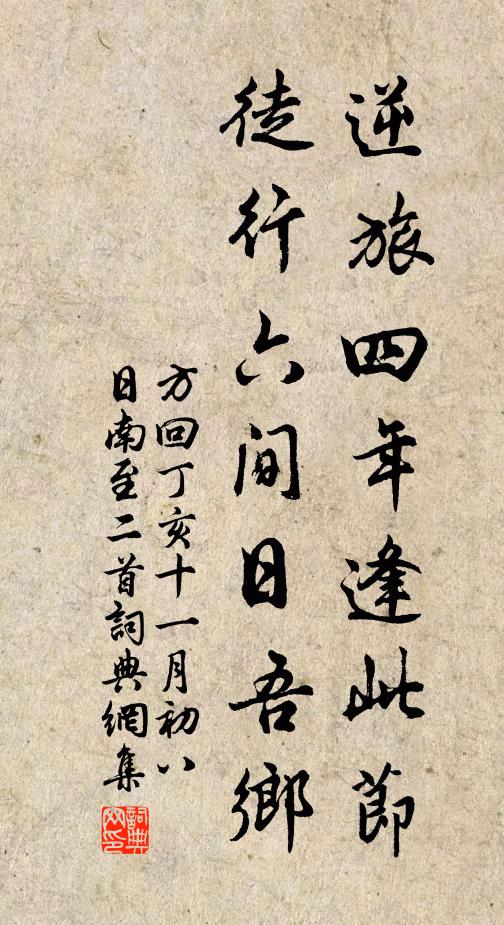 逆旅四年逢此節
徒行六間日吾鄉
方回丁亥十一月初八
日南至二首詞典網集
詞典
网印